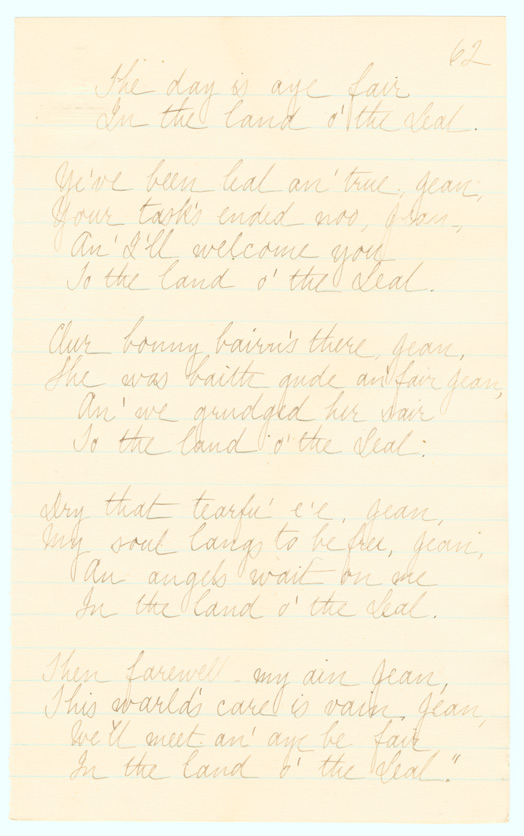 62
The day is aye fair
In the land o' the Leal.
Ye've been leal an' true, Jean,
Your task's ended noo, Jean,
An' I'll welcome you
To the land o' the Leal.
Our bonny bairn's there, Jean,
She was baith gude an' fair Jean,
An' we grudged her sair
To the land o' the Leal:
Dry that tearfu' e'e, Jean,
My soul langs to be free, Jean,
An angels wait on me
In the land o' the Leal.
Then farewell - my ain Jean,
This world's care is vain, Jean,
We'll meet an' aye be fair
In the land o' the Leal."